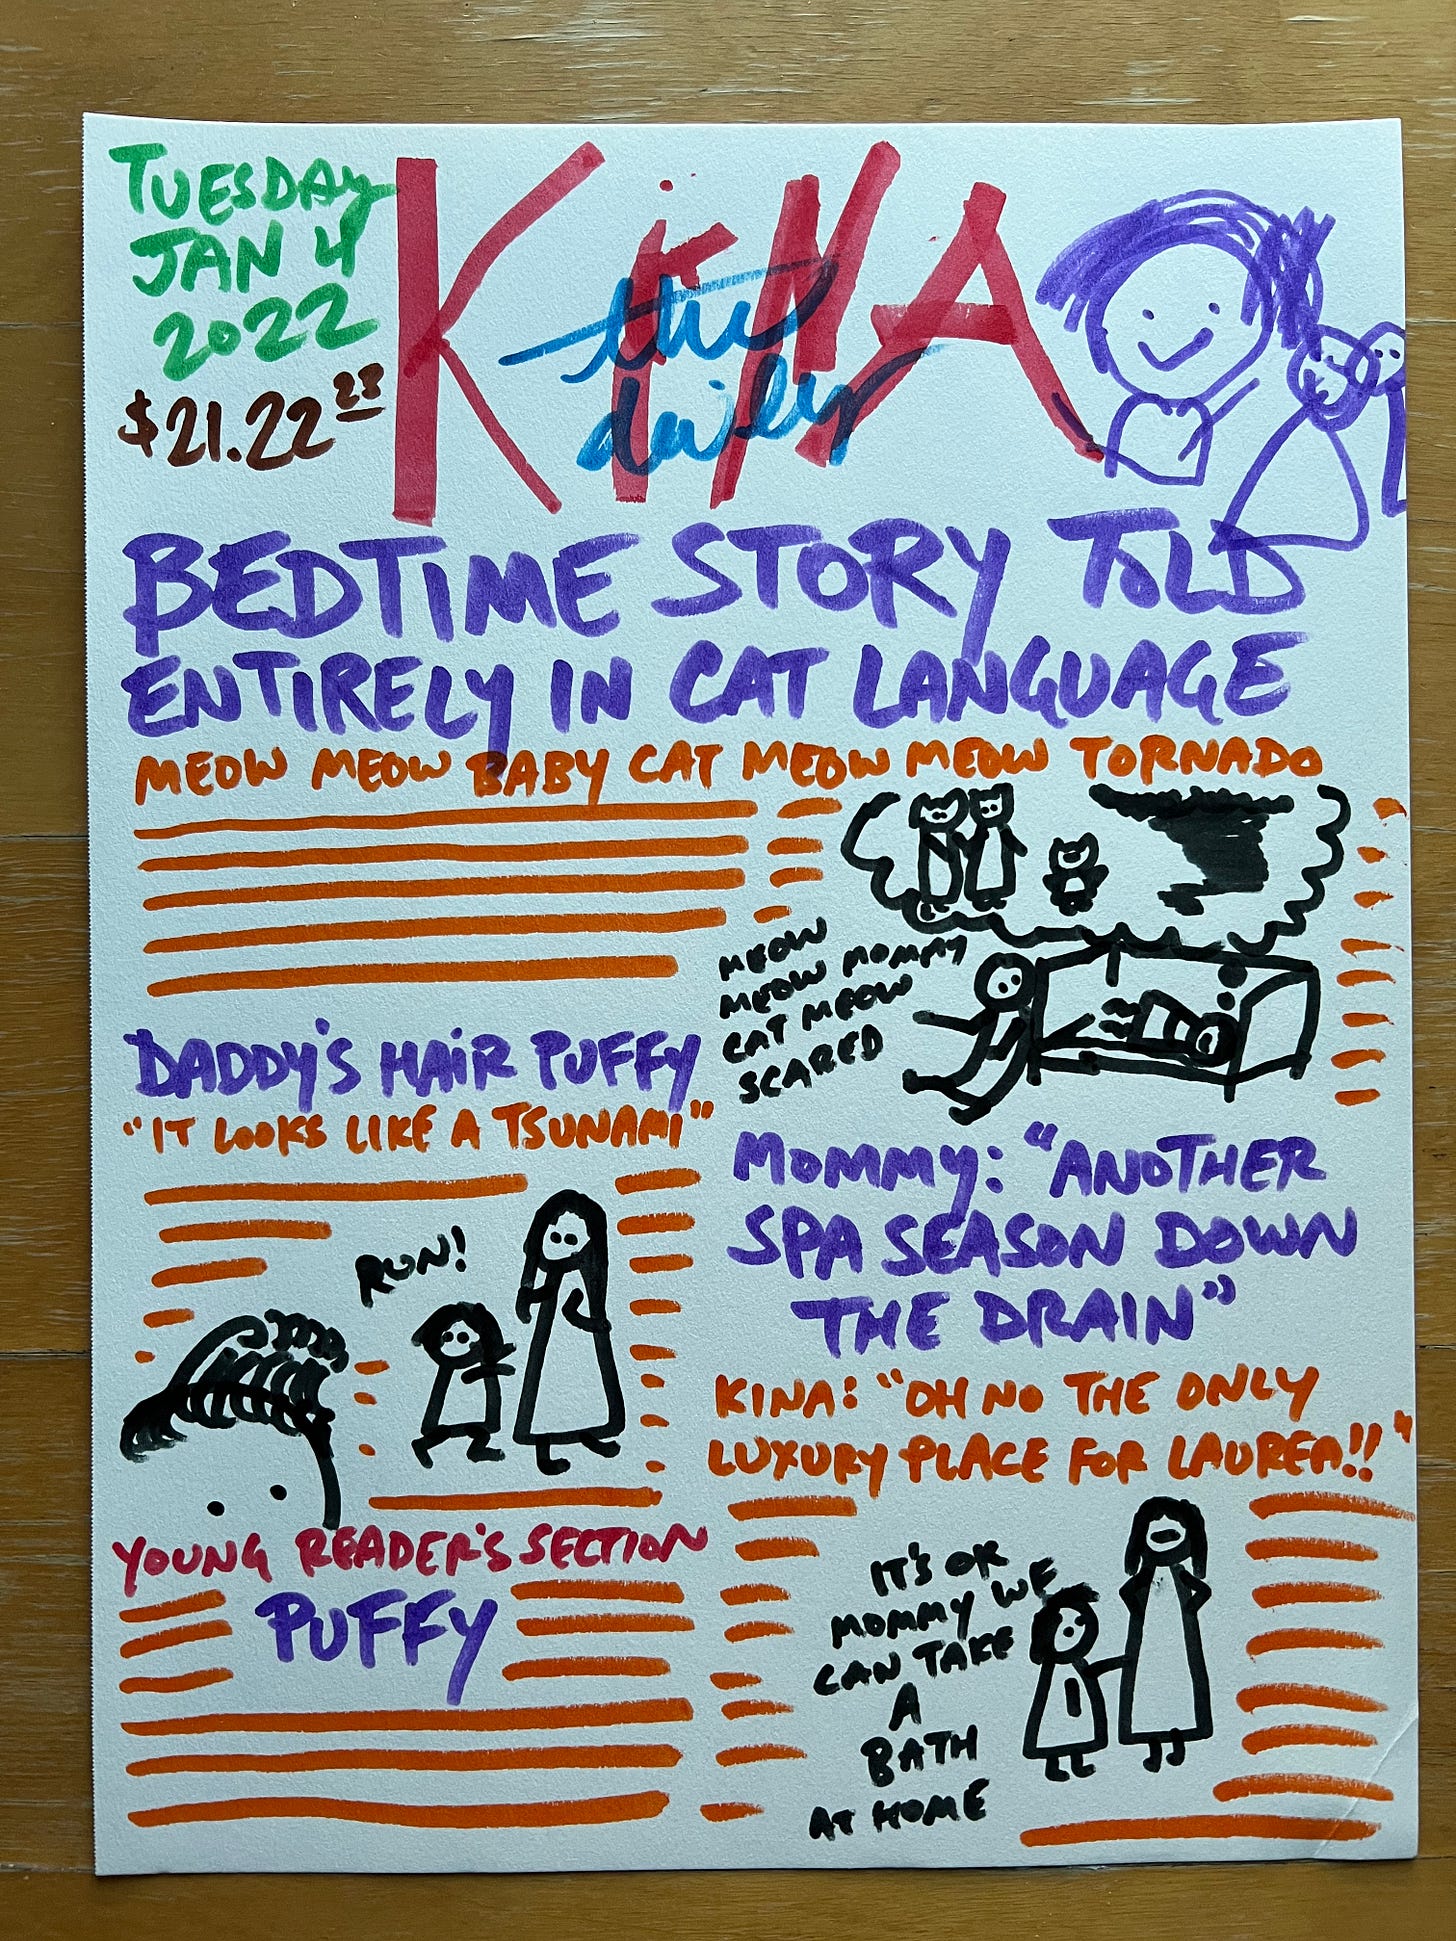 TUESDAY
JAN 4
2022
$21.22 23
KiNA
the
daily
BEDTIME STORY TOLD
ENTIRELY IN CAT LANGUAGE
MEOW MEOW BABY CAT MEOW MEOW TORNADO
MEOW
MEOW MOMMY
CAT MEOW
SCARED
DADDY'S HAIR PUFFY
"IT LOOKS LIKE A TSUNAMI"
RUN!
YOUNG READER'S SECTION
PUFFY
MOMMY: "ANOTHER
SPA SEASON DOWN
THE DRAIN"
KINA: "OH NO THE ONLY
LUXURY PLACE FOR LAUREN!!"
IT'S OK
MOMMY WE
CAN TAKE
A
BATH
AT HOME